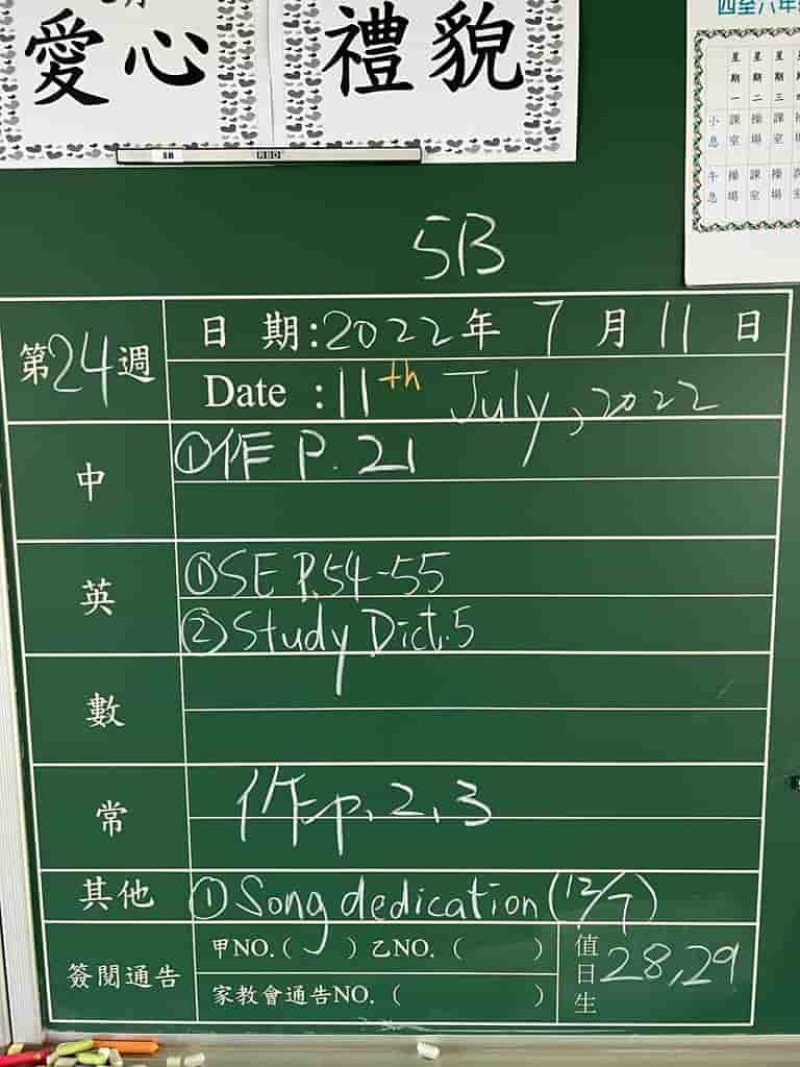 愛心 禮貌
四至六年
星期一 星期二 星期三
小息 課室 操場 課室
午息 操場 課室 操場
5B
第24週
日 期:2022年 7 月 11 日
Date :11th July, 2022
中 ①作 P. 21
英 ①SE P.54-55
②Study Dict.5
數
常 作p.2,3
其他 ①Song dedication (12/7)
簽閱通告 甲NO.( ) 乙NO. ( )
家教會通告NO. ( )
值日生 28,29